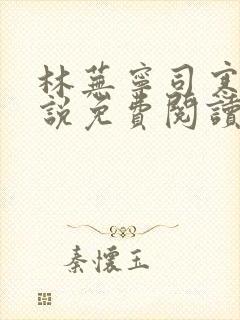 林蕪寧司寒
說免費閱讀
秦懷玉